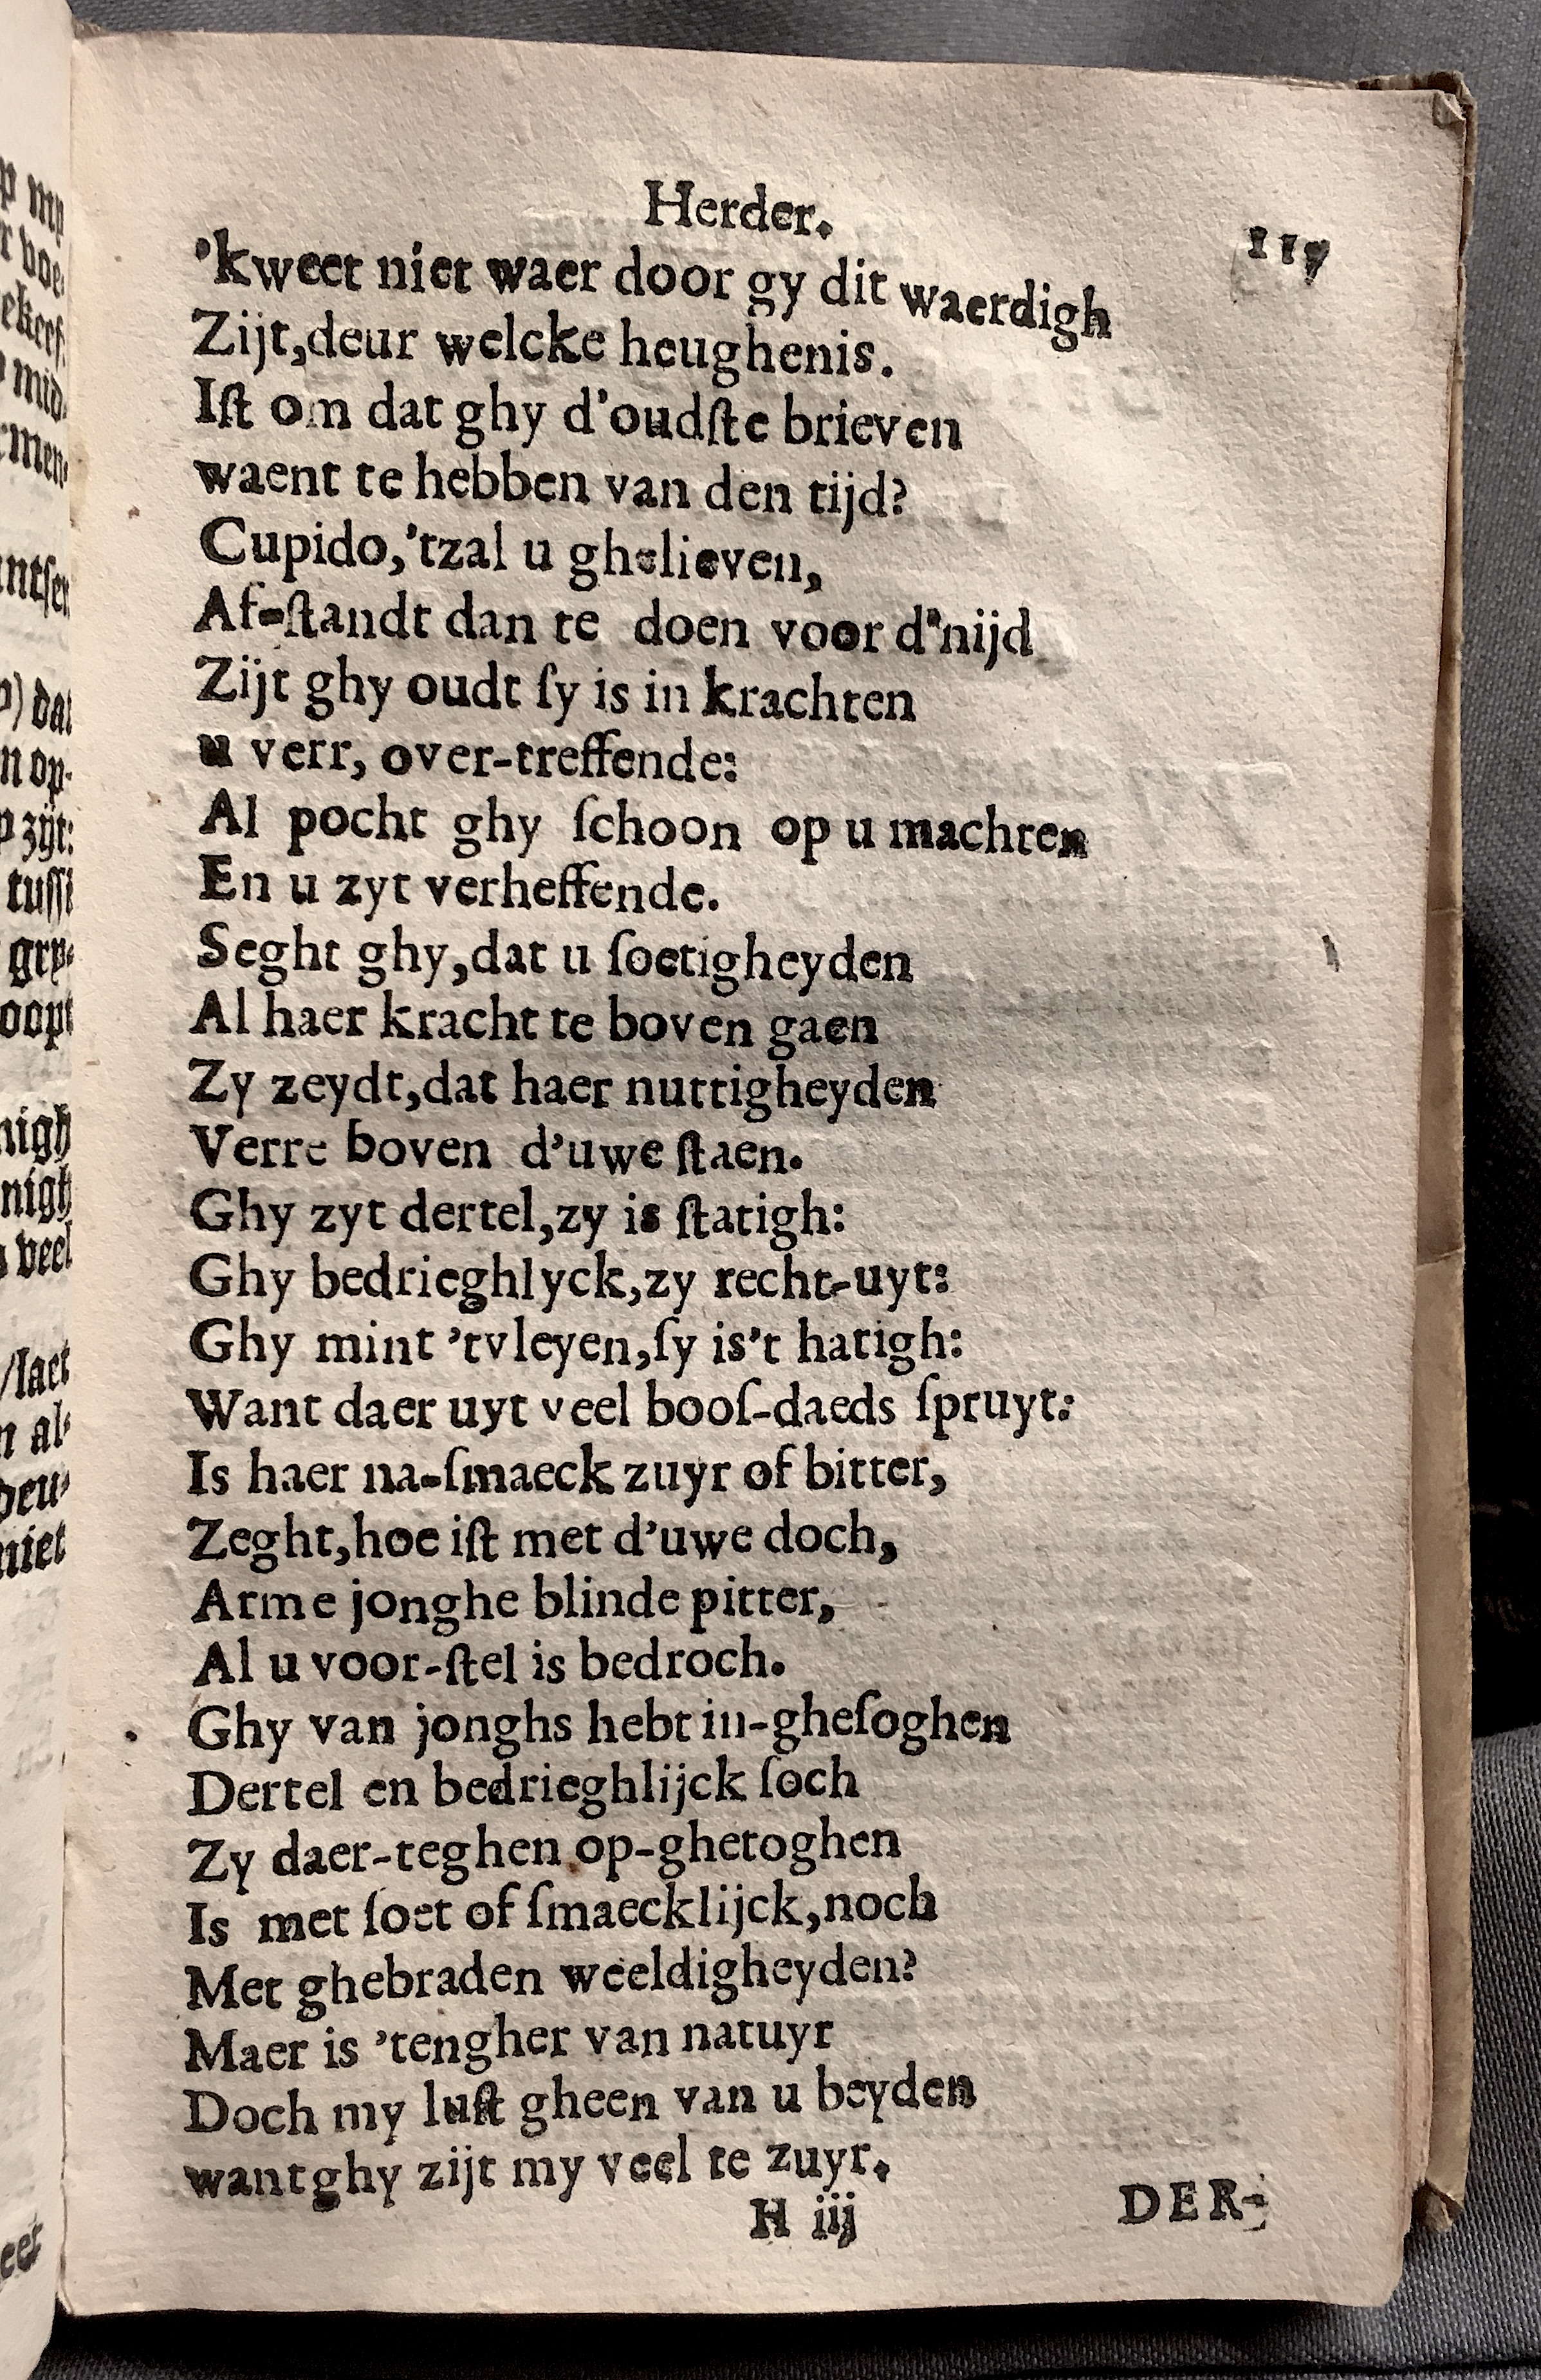 Herder.
117
'kweet niet waer door gy dit waerdigh
Zijt,deur welcke heughenis.
Iſt om dat ghy d'oudſte brieven
waent te hebben van den tijd?
Cupido,'tzal u ghelieven,
Af-ſtandt dan te doen voor d'nijd
Zijt ghy oudt ſy is in krachten
u verr, over-treffende:
Al pocht ghy ſchoon op u machten
En u zyt verheffende.
Seght ghy,dat u ſoetigheyden
Al haer kracht te boven gaen
Zy zeydt,dat haer nuttigheyden
Verre boven d'uwe ſtaen.
Ghy zyt dertel,zy is ſtatigh:
Ghy bedrieghlyck,zy recht-uyt:
Ghy mint 'tvleyen,ſy is't hatigh:
Want daer uyt veel booſ-daeds ſpruyt:
Is haer na-ſmaeck zuyr of bitter,
Zeght,hoe iſt met d'uwe doch,
Arme jonghe blinde pitter,
Al u voor-ſtel is bedroch.
Ghy van jonghs hebt in-gheſoghen
Dertel en bedrieghlijck ſoch
Zy daer-teghen op-ghetoghen
Is met ſoet of ſmaecklijck,noch
Met ghebraden weeldigheyden?
Maer is 'tengher van natuyr
Doch my luſt gheen van u beyden
want ghy zijt my veel te zuyr.
H iij
DER-